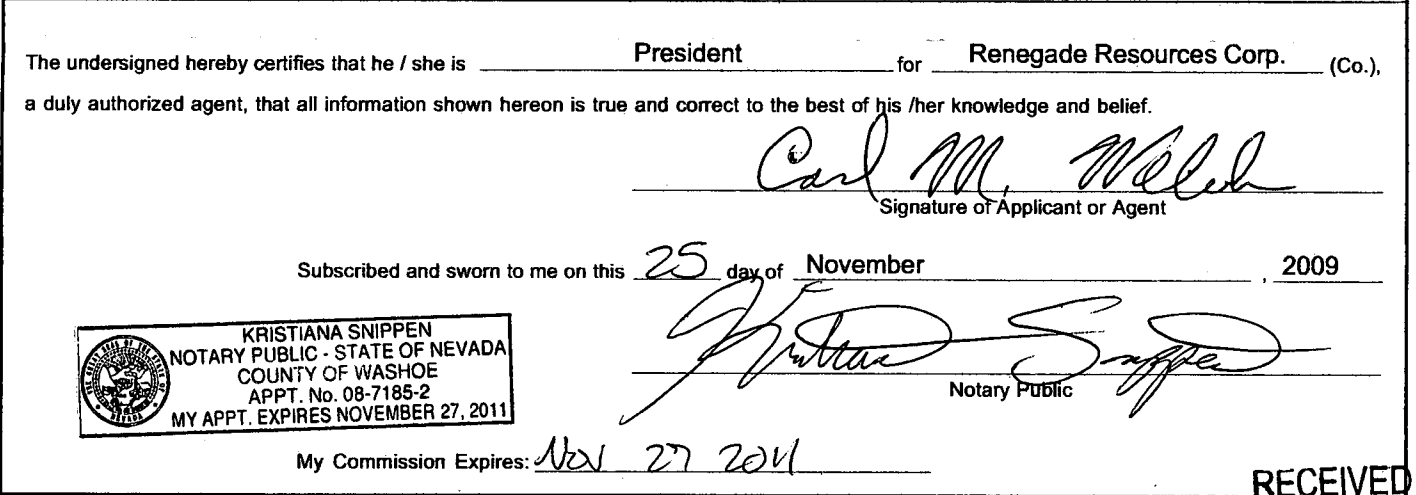 The undersigned hereby certifies that he / she is President for Renegade Resources Corp. (Co.),
a duly authorized agent, that all information shown hereon is true and correct to the best of his /her knowledge and belief.
Carl M. Welch
Signature of Applicant or Agent
Subscribed and sworn to me on this 25 day of November , 2009
Kristiana Snippen
Notary Public
KRISTIANA SNIPPEN
NOTARY PUBLIC - STATE OF NEVADA
COUNTY OF WASHOE
APPT. No. 08-7185-2
MY APPT. EXPIRES NOVEMBER 27, 2011
My Commission Expires: Nov 27 2011
RECEIVED